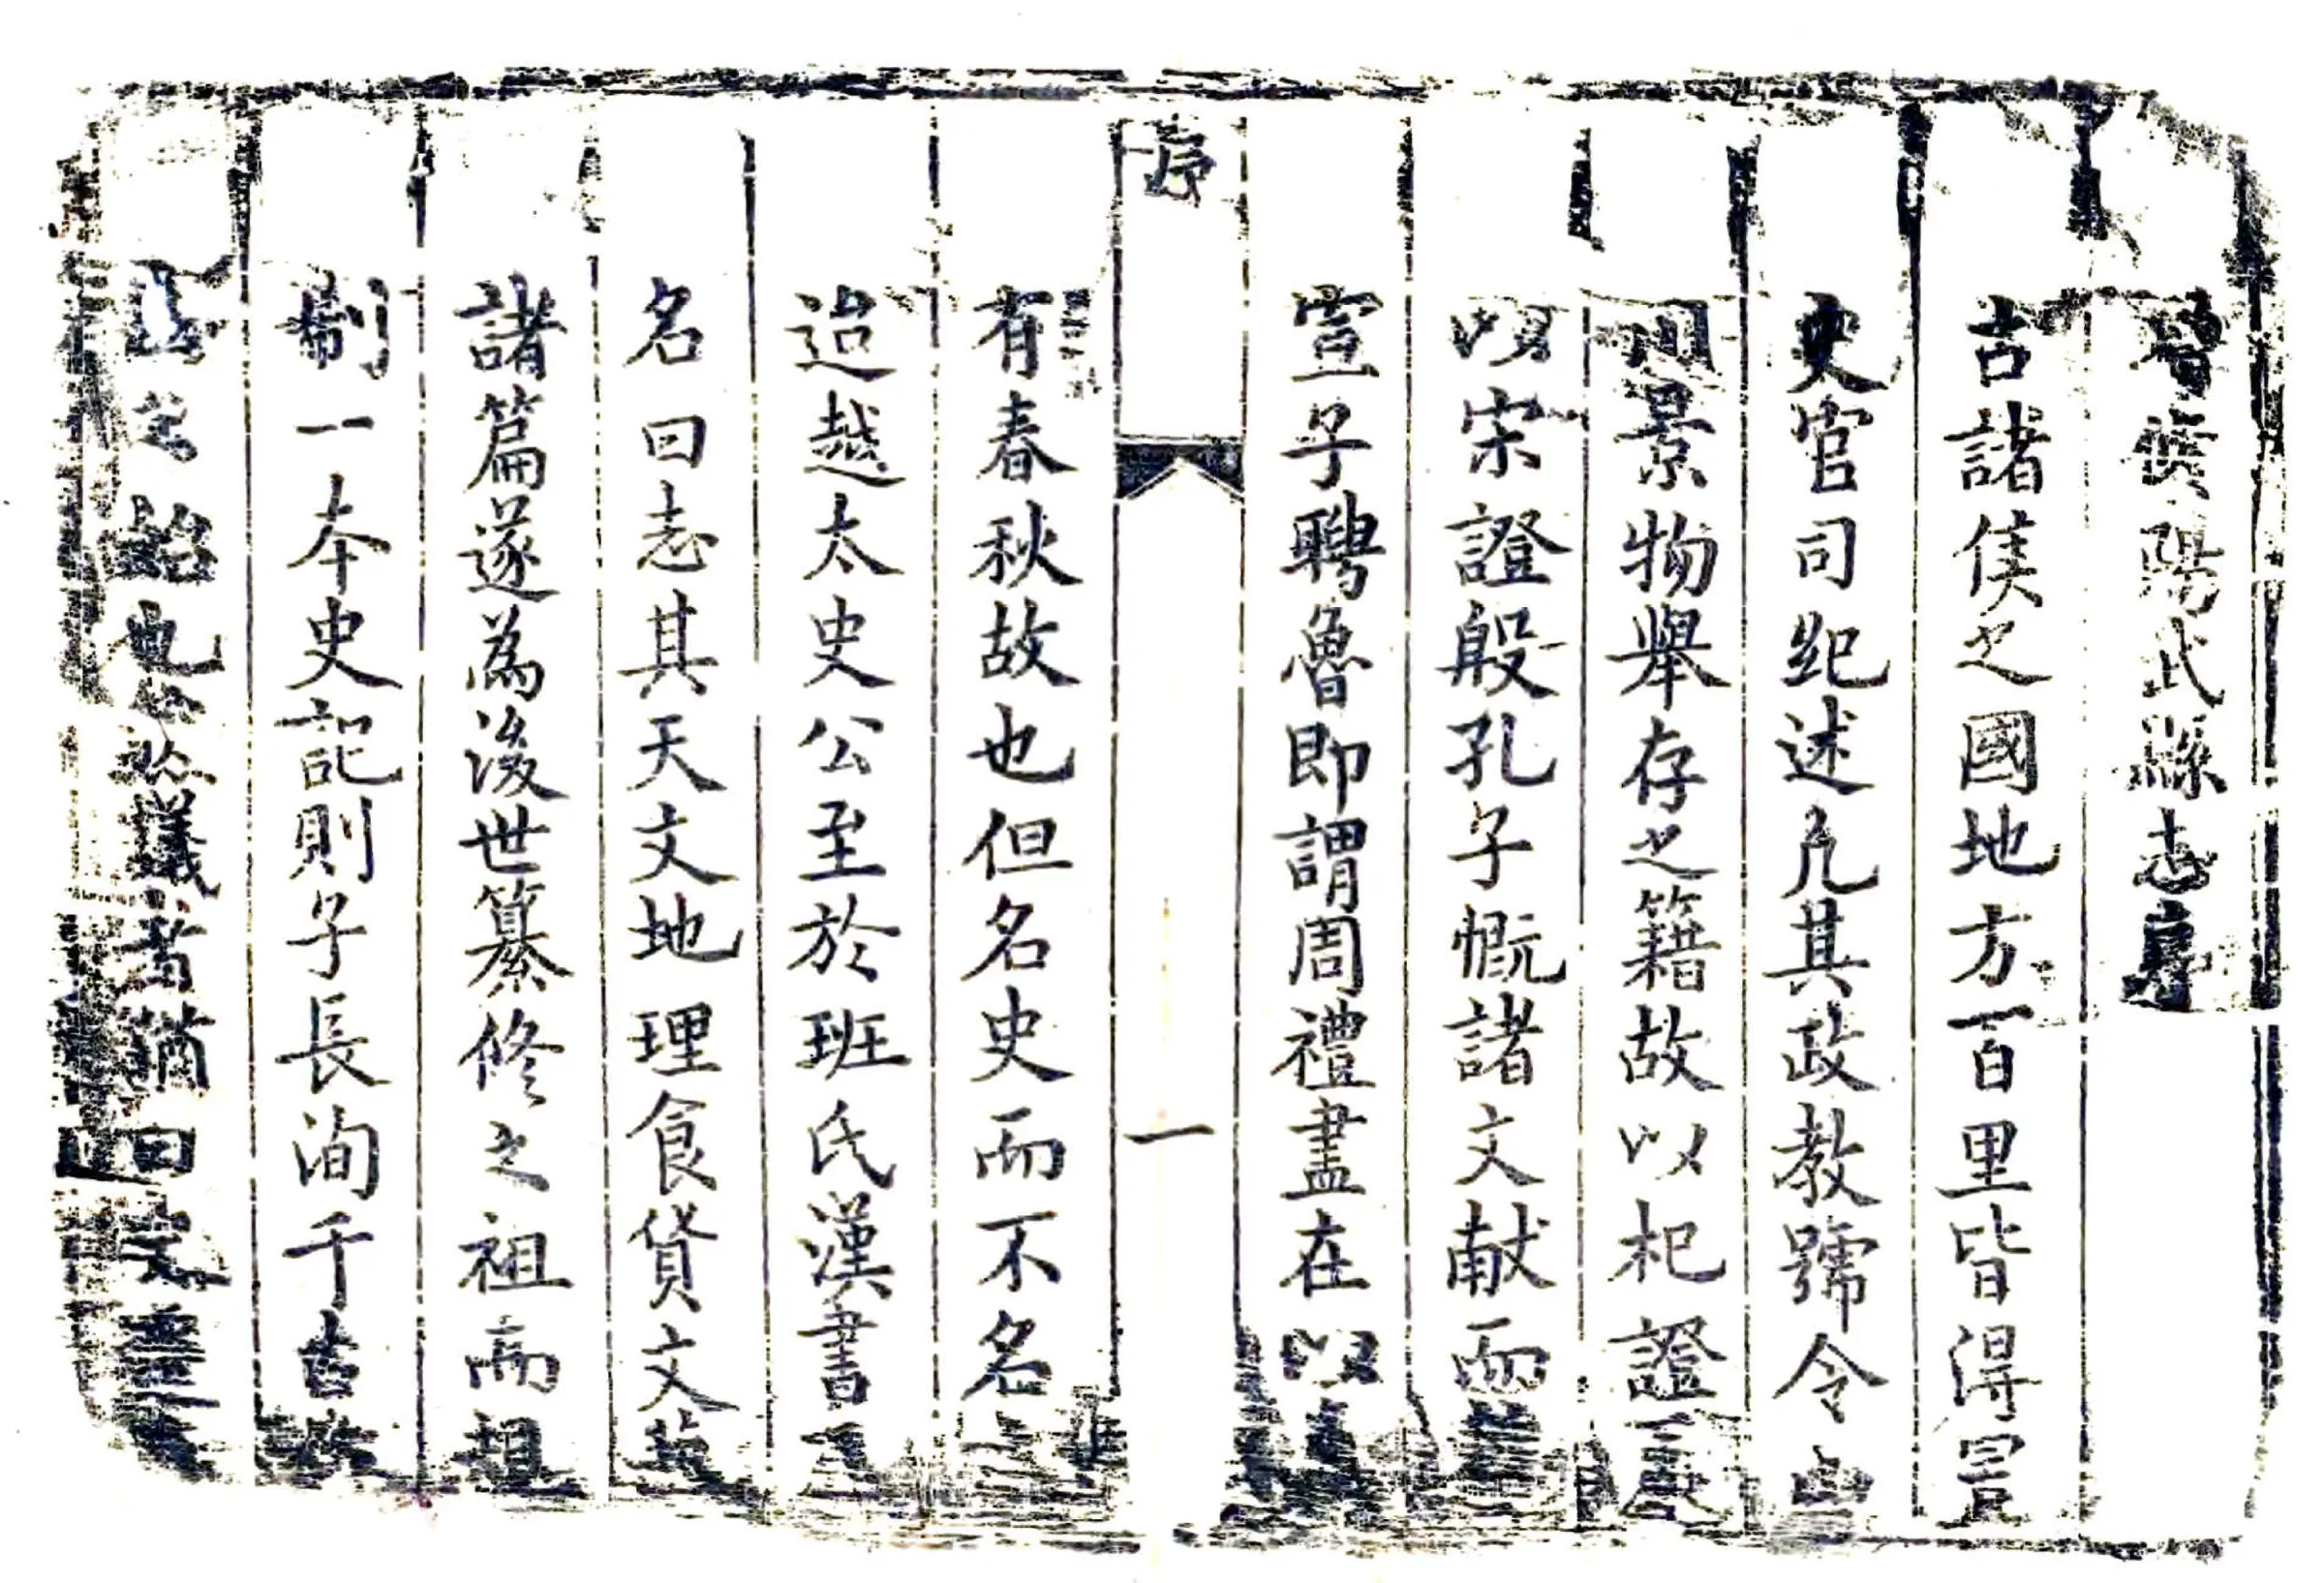 曾儀陽武縣志序
古諸侯之國地方百里皆得置
史官司紀述凡其政教號令山
川景物舉存之籍故以杞證夏
以宋證殷孔子慨諸文献而
宣子聘魯即謂周禮盡在以
序
一
有春秋故也但名史而不名
迨越太史公至於班氏漢書
名曰志其天文地理食貨文藝
諸篇遂為後世纂修之祖而
制一本史記則子長洵千古
也議者謂曰文